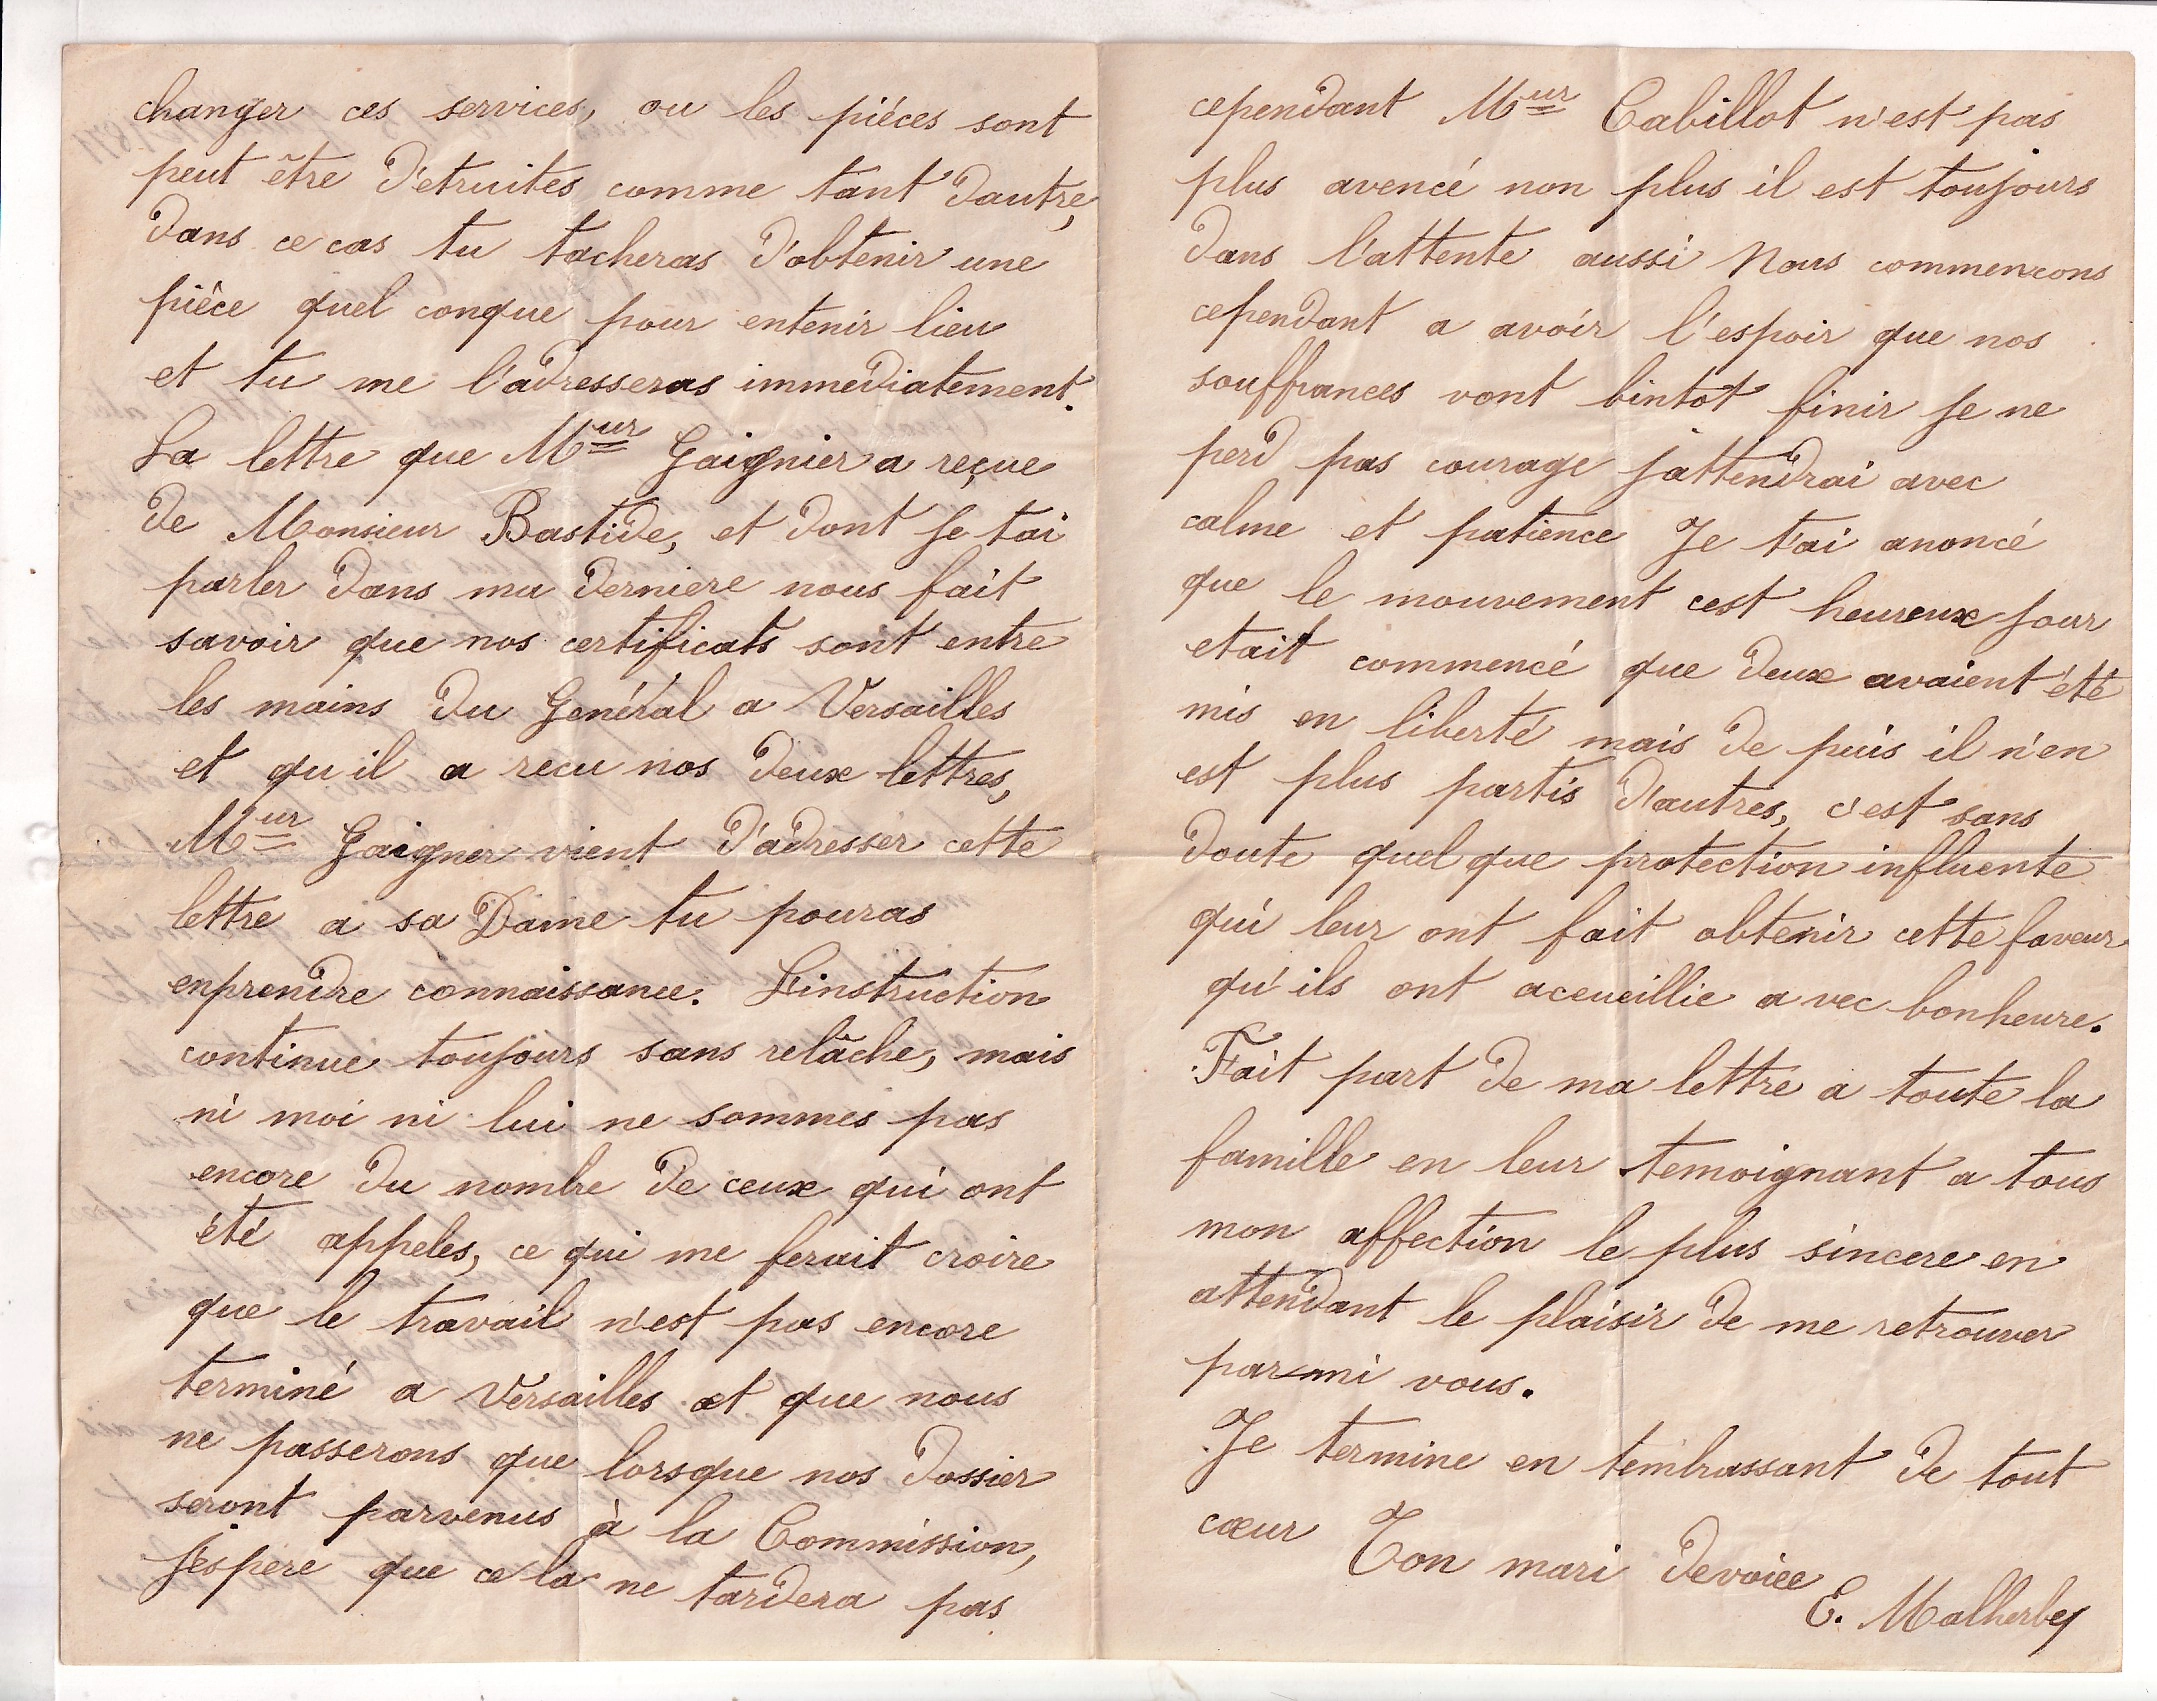 changer ces services, ou les pièces sont
peut être d'etruites comme tant d'autre,
dans ce cas tu tacheras d'obtenir une
pièce quel conque pour entenir lieu
et tu me l'adresseras immediatement.
La lettre que Mur Gaignier a reçue
de Monsieur Bastide, et dont je tai
parler dans ma derniere nous fait
savoir que nos certificats sont entre
les mains du Genéral a Versailles
et qu il a recu nos deux lettres,
Mur Gaigner vient d'adresser cette
lettre a sa Dame tu pouras
enprendre connaissance. L'instruction
continue toujours sans relâche, mais
ni moi ni lui ne sommes pas
encore du nombre de ceux qui ont
été appeles, ce qui me ferait croire
que le travail n'est pas encore
terminé a Versailles et que nous
ne passerons que lorsque nos dossier
seront parvenus à la Commission,
j'espere que ce la ne tardera pas
cependant Mur Cabillot n'est pas
plus avencé non plus il est toujours
dans l'attente aussi Nous commencons
cependant a avoir l'espoir que nos
souffrances vont bintot finir je ne
perd pas courage j'attendrai avec
calme et patience Je t'ai anoncé
que le mouvement cest heureux jour
etait commencé que deux avaient été
mis en liberté mais de puis il n'en
est plus partis d'autres, c'est sans
doute quel que protection influente
qui leur ont fait obtenir cette faveur
qu'ils ont aceueillie a vec bonheure.
Fait part de ma lettre a toute la
famille en leur temoignant a tous
mon affection le plus sincere en
attendant le plaisir de me retrouver
parmi vous.
Je termine en tembrassant de tout
cœur Ton mari devoiee
E. Malherbe